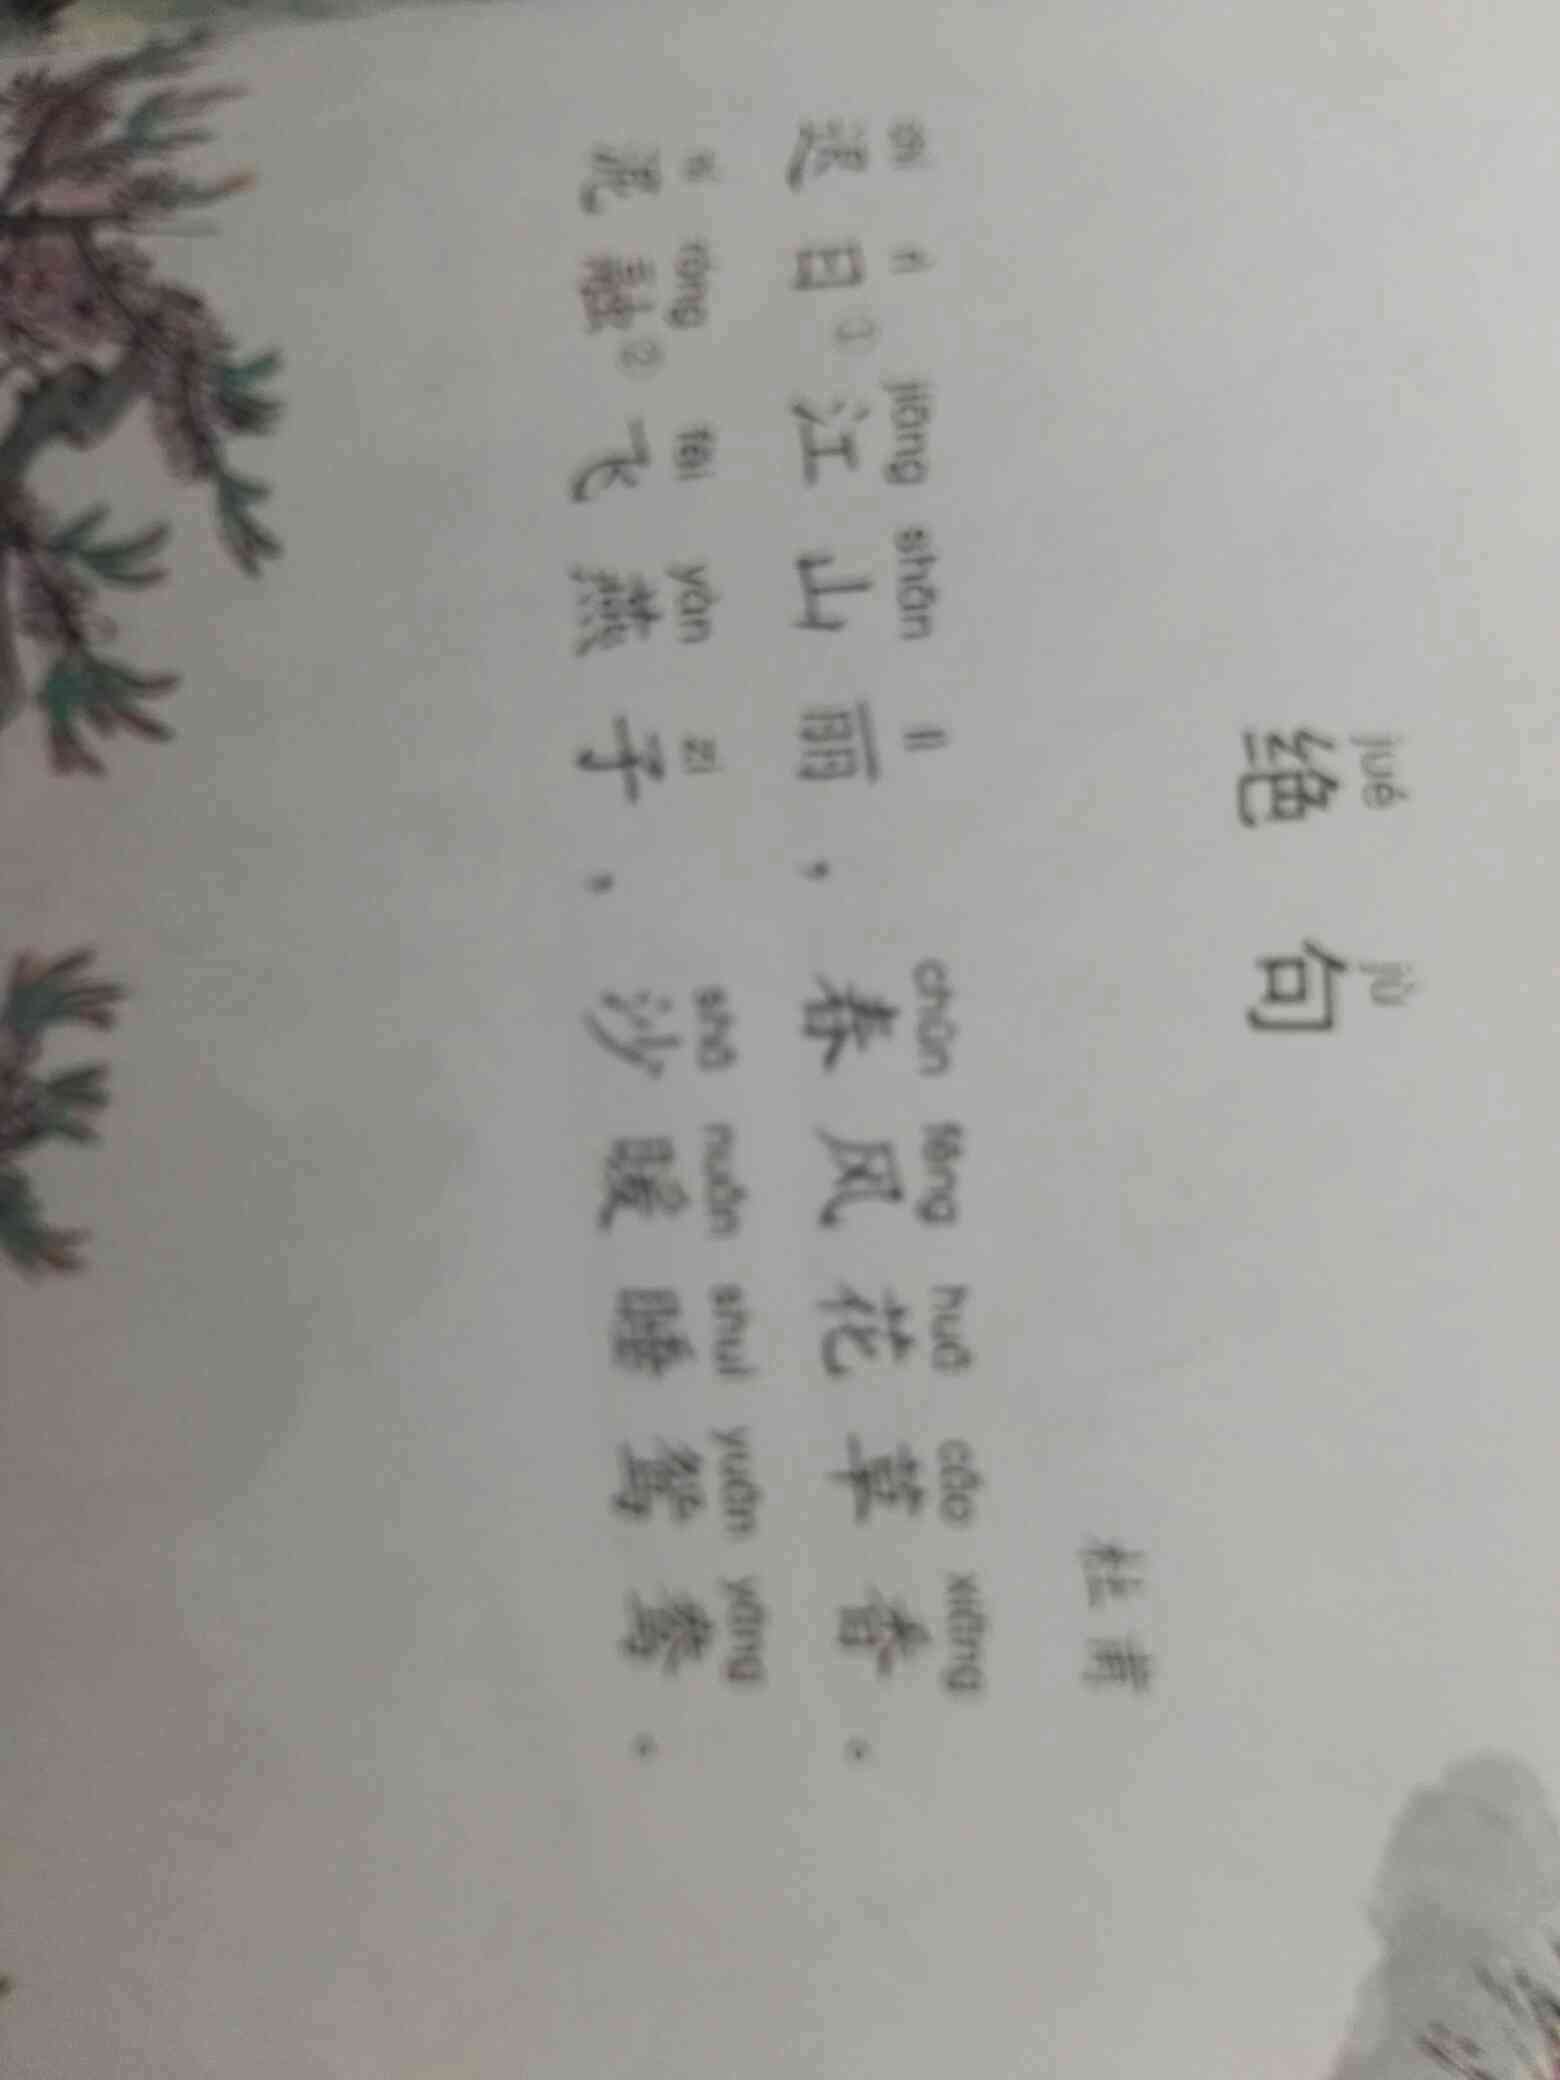 jué jù
绝句
杜甫
chí rì jiāng shān lì chūn fēng huā cǎo xiāng
迟日①江山丽，春风花草香。
ní róng fēi yàn zi shā nuǎn shuì yuān yāng
泥融②飞燕子，沙暖睡鸳鸯。